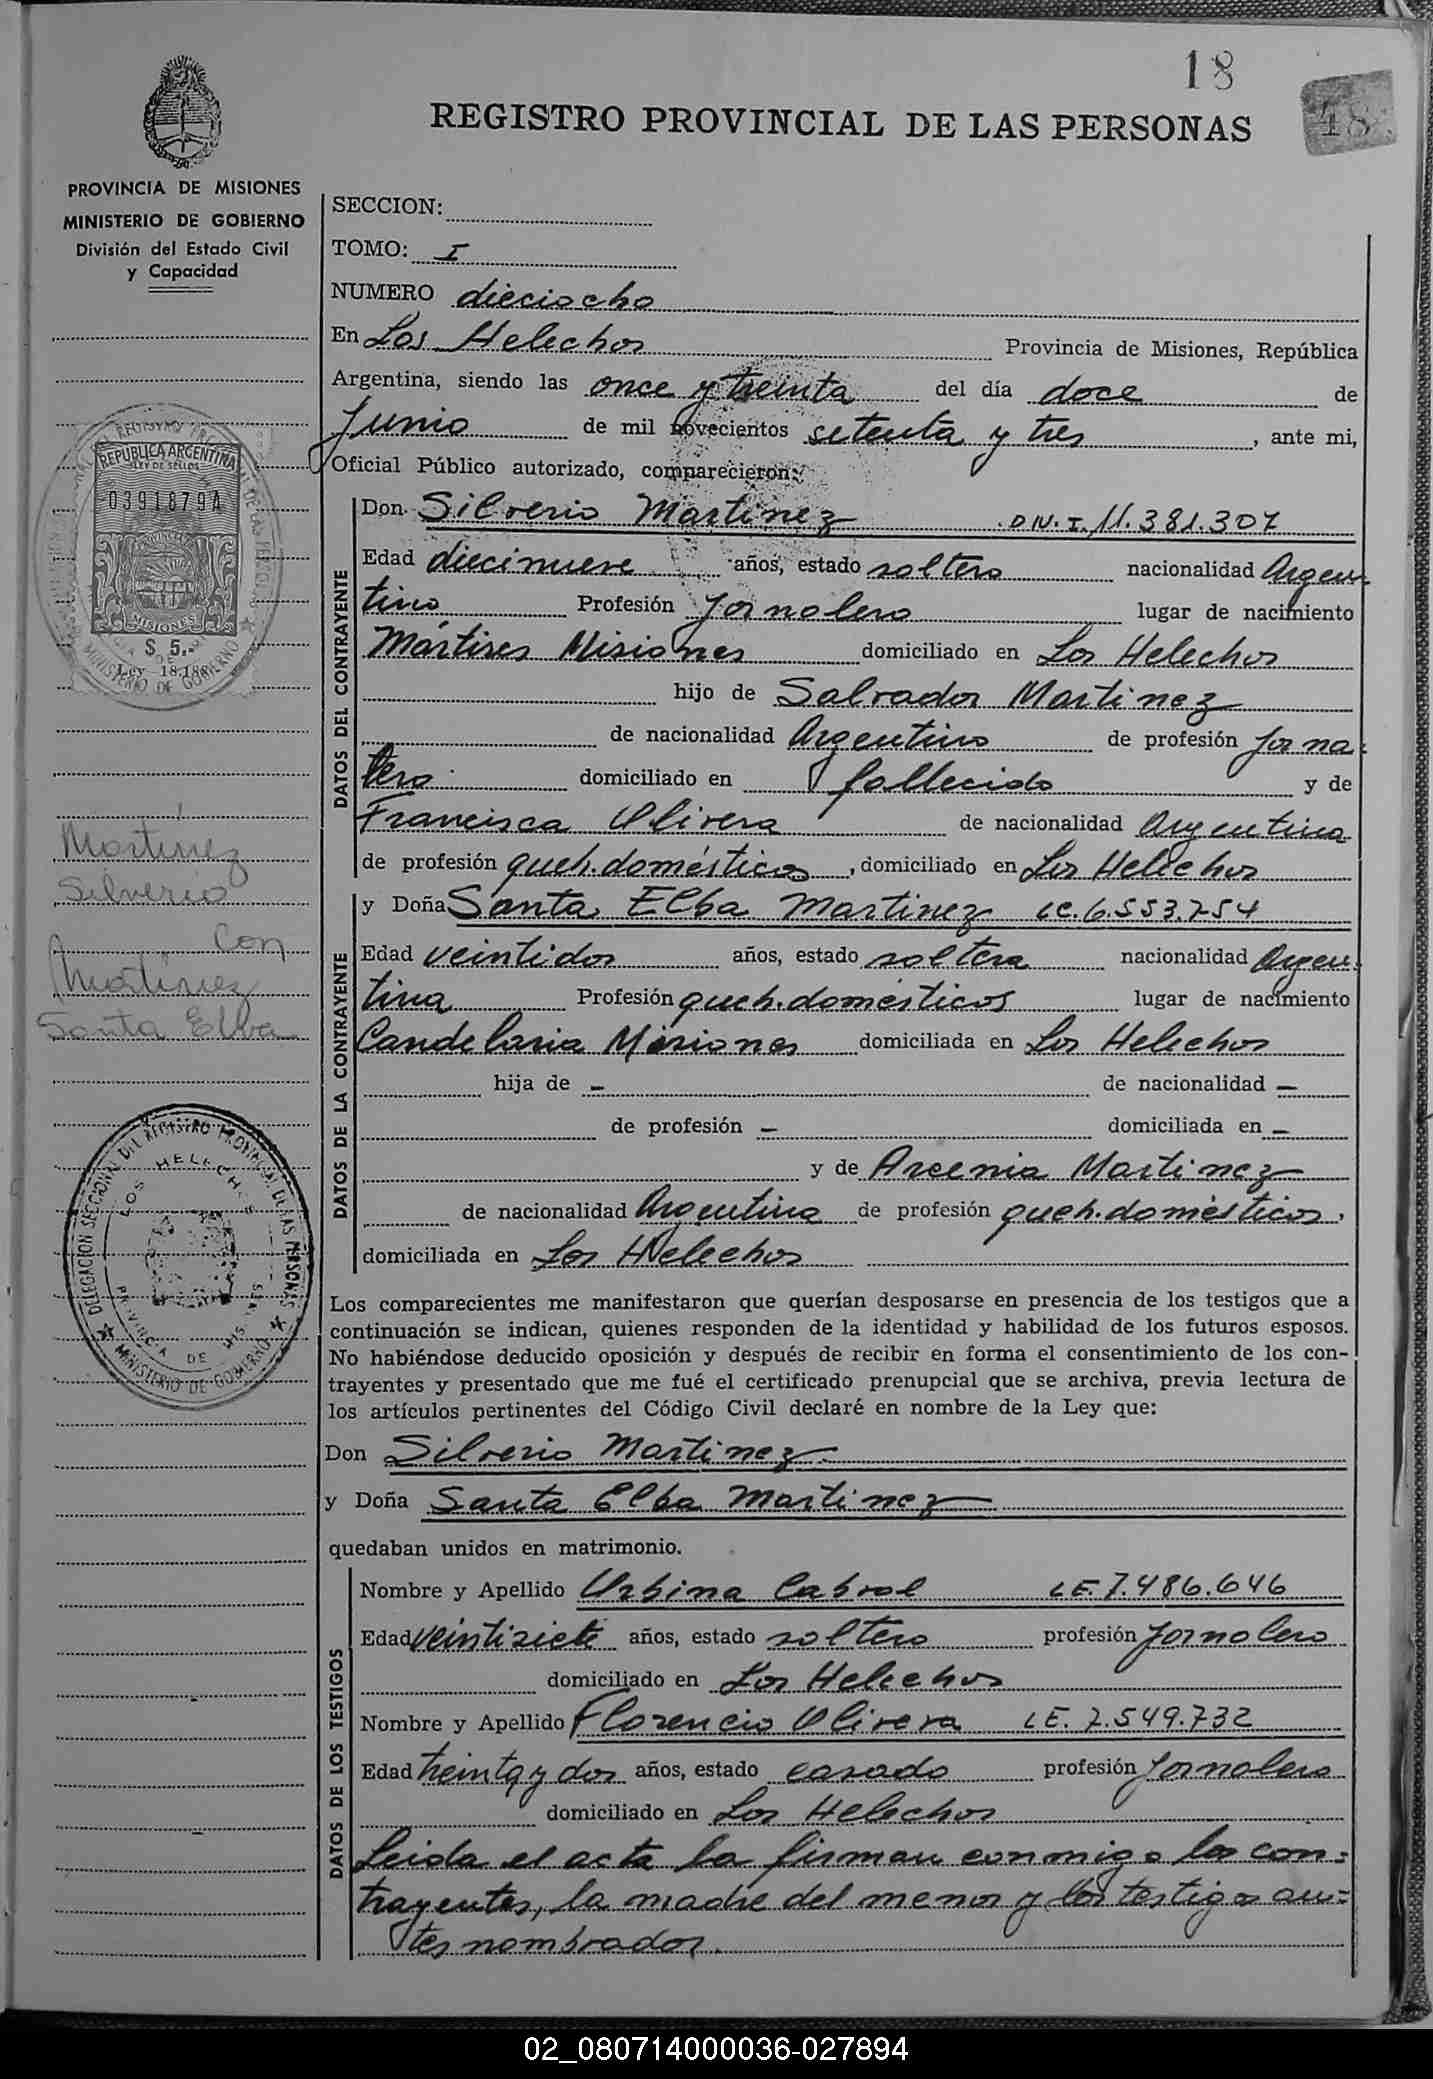 18
48
REGISTRO PROVINCIAL DE LAS PERSONAS
PROVINCIA DE MISIONES
MINISTERIO DE GOBIERNO
División del Estado Civil
y Capacidad
SECCION:
TOMO: I
NUMERO dieciocho
En Los Helechos Provincia de Misiones, República
Argentina, siendo las once y treinta del día doce de
Junio de mil novecientos setenta y tres, ante mi,
Oficial Público autorizado, comparecieron:
REPUBLICA ARGENTINA
LEY DE SELLOS
0391879A
MISIONES
$ 5.-
Ley 18.188
MINISTERIO DE GOBIERNO
DATOS DEL CONTRAYENTE
Don Silverio Martinez D.N.I. 11.381.307
Edad diecinueve años, estado soltero nacionalidad Argen
tino Profesión Jornalero lugar de nacimiento
Mártires Misiones domiciliado en Los Helechos
hijo de Salvador Martinez
de nacionalidad Argentino de profesión Jorna
lero domiciliado en fallecido y de
Francisca Olivera de nacionalidad Argentina
de profesión queh. domésticos, domiciliado en Los Helechos
Martínez
Silverio
con
Martinez
Santa Elba
DATOS DE LA CONTRAYENTE
y Doña Santa Elba Martinez LC. 6.553.254
Edad veintidos años, estado soltera nacionalidad Argen
tina Profesión queh. domésticos lugar de nacimiento
Candelaria Misiones domiciliada en Los Helechos
hija de – de nacionalidad –
de profesión – domiciliada en –
y de Arcenia Martinez
de nacionalidad Argentina de profesión queh. domésticos,
domiciliada en Los Helechos
DELEGACION SECCIONAL DEL REGISTRO PROVINCIAL DE LAS PERSONAS
LOS HELECHOS
PROVINCIA DE MISIONES
MINISTERIO DE GOBIERNO
Los comparecientes me manifestaron que querían desposarse en presencia de los testigos que a
continuación se indican, quienes responden de la identidad y habilidad de los futuros esposos.
No habiéndose deducido oposición y después de recibir en forma el consentimiento de los con-
trayentes y presentado que me fué el certificado prenupcial que se archiva, previa lectura de
los artículos pertinentes del Código Civil declaré en nombre de la Ley que:
Don Silverio Martinez
y Doña Santa Elba Martinez
quedaban unidos en matrimonio.
DATOS DE LOS TESTIGOS
Nombre y Apellido Urbina Cabral LE. 7.486.646
Edad veintisiete años, estado soltero profesión Jornalero
domiciliado en Los Helechos
Nombre y Apellido Florencio Olivera LE. 7.549.732
Edad treinta y dos años, estado casado profesión Jornalero
domiciliado en Los Helechos
Leida el acta la firman conmigo los con=
trayentes, la madre del menor y los testigos an=
tes nombrados.
02_080714000036-027894